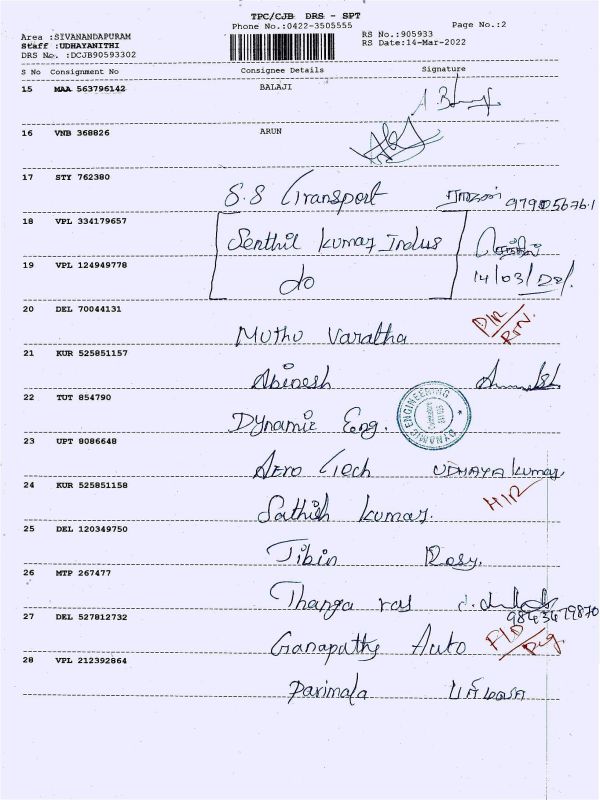 TPC/CJB DRS - SPT
Phone No.:0422-3505555
Page No.:2
Area :SIVANANDAPURAM
RS No.:905933
Staff :UDHAYANITHI
RS Date:14-Mar-2022
DRS No. :DCJB90593302
S No Consignment No Consignee Details Signature
15 MAA 563796142 BALAJI
16 VNB 368826 ARUN
17 STY 762380 S.S Transport
18 VPL 334179657 Senthil Kumar Indus
19 VPL 124949778 do 14/03/22/.
20 DEL 70044131 Muthu Varatha
21 KUR 525851157 Abinesh
22 TUT 854790 Dynamic Eng. DYNAMIC ENGINEERING
23 UPT 8086648 Aero Tech UDHAYA Kumar
24 KUR 525851158 Sathish Kumar.
25 DEL 120349750 Jibin Rosy.
26 MTP 267477 Thanga raj
27 DEL 527812732 Ganapathy Auto
28 VPL 212392864 Parimala